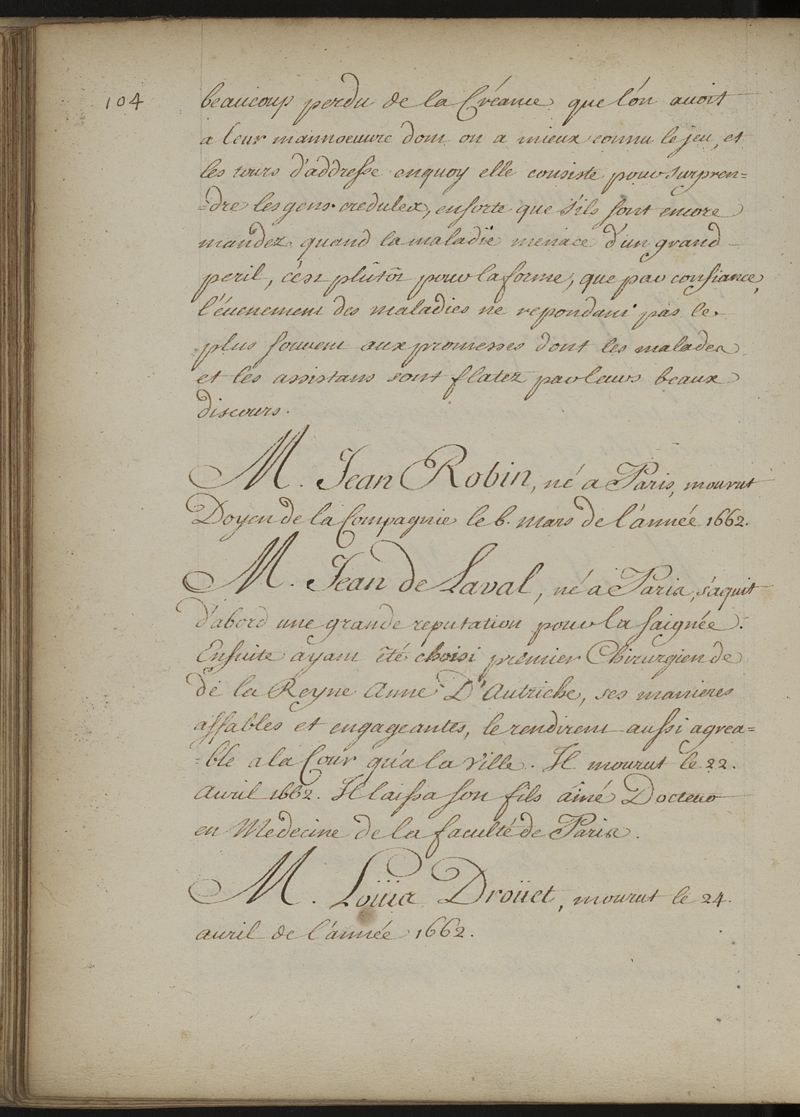 104
beaucoup perdu de la Créance que l'on avoit
a leur mannoeuvre dont on a mieux connu le jeu, et
les tours d'addresse enquoy elle consiste pour surpren=
=dre les gens credules, ensorte que s'ils sont encore
mandez quand la maladie menace d'un grand
peril, c'est plûtôt pour la forme, que par confiance,
l'évenement des maladies ne repondant pas le
plus souvent aux promesses dont les malades
et les assistans sont flatez par leurs beaux
discours.
M. Jean Robin, né a Paris, mourut
Doyen de la Compagnie le 6. mars de l'année 1662.
M. Jean de Laval, né a Paris, s'aquit
d'abord une grande reputation pour la saignée.
Ensuite ayant été choisi premier Chirurgien de
de la Reyne Anne D'Autriche, ses manieres
affables et engageantes, le rendirent aussi agrea=
=ble a la Cour qu'a la Ville. Il mourut le 22.
Avril 1662. Il laissa son fils ainé Docteur
en Medecine de la faculté de Paris.
M. Loüis Droüet, mourut le 24.
avril de l'année 1662.